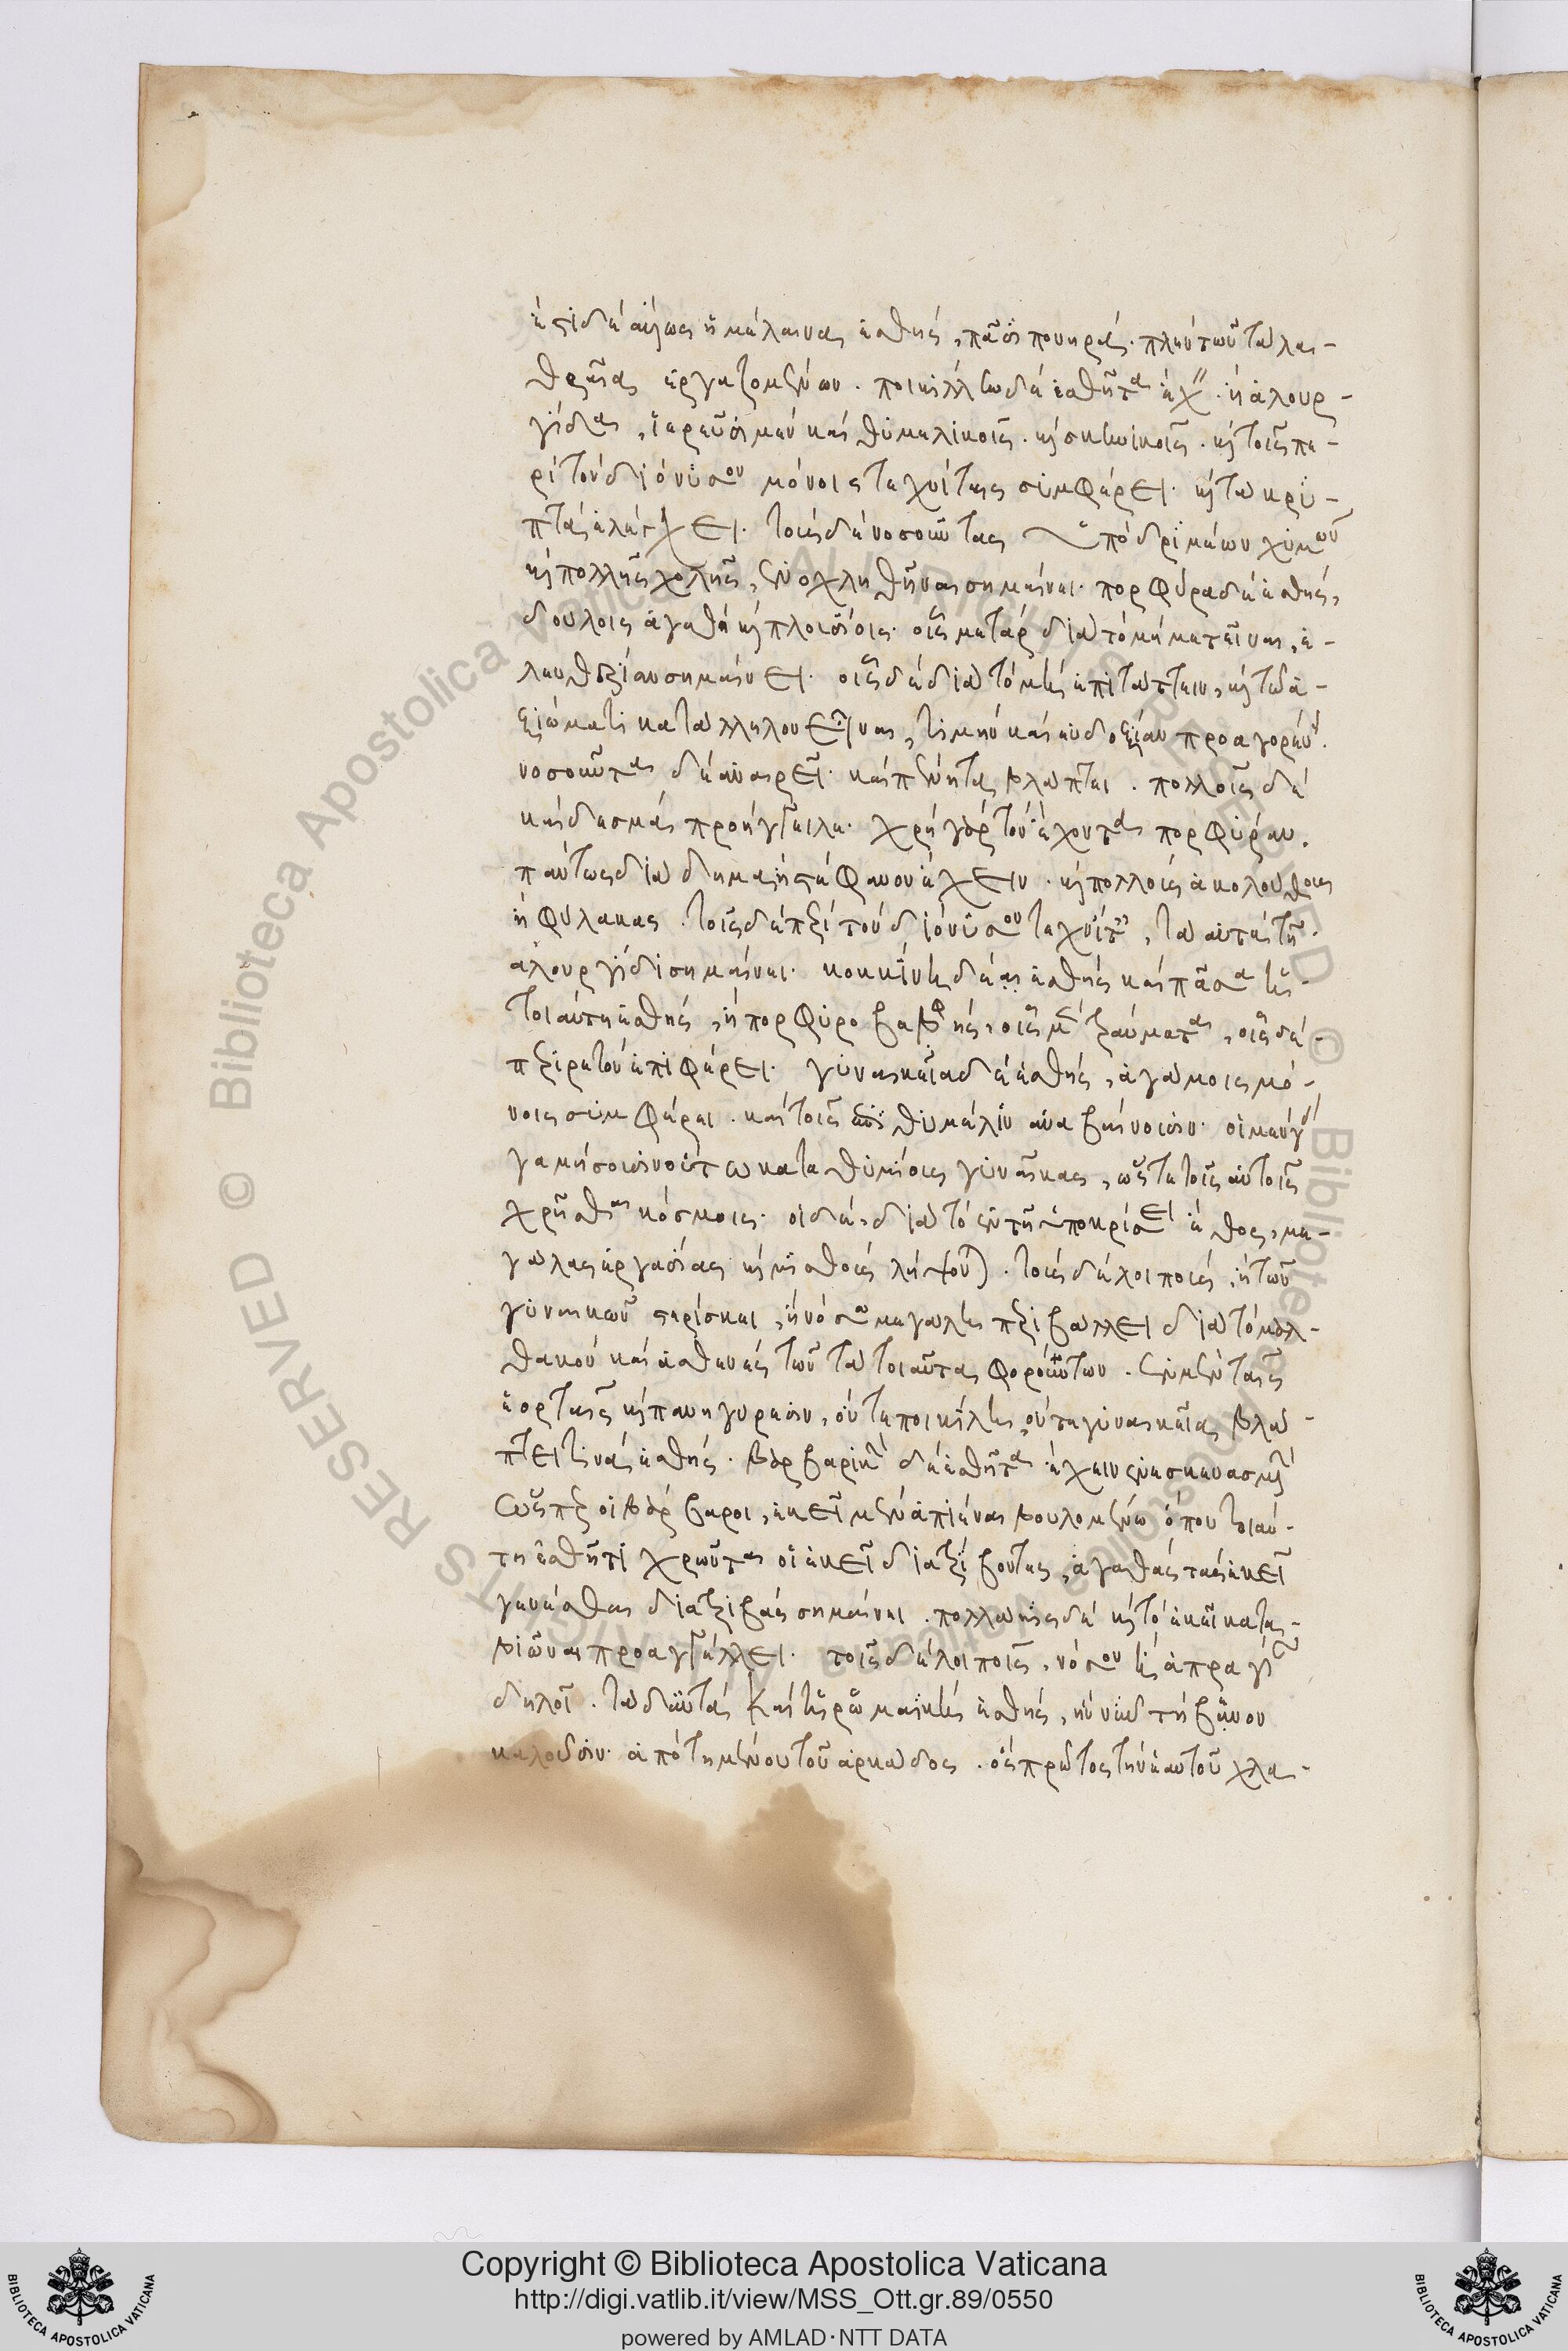 ἐστὶ δὲ ἄλλως ἡ μέλαινα ἐσθὴς, πᾶσι πονηρὰ. πλὴν τῶν τὰ λα-
θραῖα ἐργαζομένων. ποικίλην δὲ ἐσθῆτα ἔχειν ἢ ἁλουρ-
γίδα, ἱερεῦσι μὲν καὶ θυμελικοῖς. καὶ σκηνικοῖς. καὶ τοῖς πε-
ρὶ τὸν διόνυσον μόνοις τεχνίταις συμφέρει. καὶ τὰ κρυ-
πτὰ ἐλέγχει. τοὺς δὲ νοσοῦντας ὑπὸ δριμέων χυμῶν
καὶ πολλῆς χολῆς, ἐνοχληθῆναι σημαίνει. πορφύρα δὲ ἐσθὴς,
δούλοις ἀγαθὴ καὶ πλουσίοις. οἷς μὲν γὰρ διὰ τὸ μὴ μετεῖναι, ἐ-
λευθερίαν σημαίνει. οἷς δὲ διὰ τὸ μὴ ἐπιτάττειν, καὶ τῷ ἀ-
ξιώματι κατάλληλον εἶναι, τιμὴν καὶ εὐδοξίαν προαγορεύει.
νοσοῦντας δὲ ἀναιρεῖ. καὶ πένητας βλάπτει. πολλοῖς δὲ
καὶ δεσμὰ προήγγειλε. χρὴ γὰρ τὸν ἔχοντα πορφύραν.
πάντως διάδημα ἢ στέφανον ἔχειν. καὶ πολλοὺς ἀκολούθους
ἢ φύλακας. τοῖς δὲ περὶ τὸν διόνυσον τεχνίταις, τὰ αὐτὰ τῇ
ἁλουργίδι σημαίνει. κοκκίνη δὲ ἐσθὴς καὶ πᾶσα ἡ
τοιαύτη ἐσθὴς, ἢ πορφυροβαφὴς, οἷς μὲν τραύματα, οἷς δὲ
πυρετὸν ἐπιφέρει. γυναικεία δὲ ἐσθὴς, ἀγάμοις μό-
νοις συμφέρει. καὶ τοῖς ἐπὶ θυμέλην ἀναβαίνουσιν. οἱ μὲν γὰρ
γαμήσουσιν οὕτω καταθυμίους γυναῖκας, ὥστε τοῖς αὐτοῖς
χρῆσθαι κόσμοις. οἱ δὲ, διὰ τὸ ἐν τῇ ὑποκρίσει ἔθος, με-
γάλας ἐργασίας καὶ μισθοὺς λήψονται. τοὺς δὲ λοιποὺς, ἢ τῶν
γυναικῶν στερίσκει, ἢ νόσῳ μεγάλῃ περιβάλλει διὰ τὸ μαλ-
θακὸν καὶ ἀσθενὲς τῶν τὰ τοιαῦτα φορούντων. ἐν μέντοι ταῖς
ἑορταῖς καὶ πανηγύρεσιν, οὔτε ποικίλη, οὔτε γυναικεία βλά-
πτει τινὰ ἐσθὴς. βαρβαρικὴν δὲ ἐσθῆτα ἔχειν ἐνεσκευασμένην
ὥσπερ οἱ βάρβαροι, ἐκεῖ μὲν ἀπιέναι βουλομένῳ ὅπου τοιαύ-
τῃ ἐσθῆτι χρῶνται οἱ ἐκεῖ διατρίβοντες, ἀγαθὰς τὰς ἐκεῖ
γενέσθαι διατριβὰς σημαίνει. πολλάκις δὲ καὶ τὸ ἐκεῖ κατα-
βιῶναι προαγγέλλει. τοῖς δὲ λοιποῖς, νόσον ἢ ἀπραγίαν
δηλοῖ. τὰ δὲ αὐτὰ καὶ ἡ ῥωμαϊκὴ ἐσθὴς, ἣν νῦν τήβεννον
καλοῦσιν. ἀπὸ τημένου τοῦ ἀρκάδος. ὃς πρῶτος τὴν ἑαυτοῦ χλα-
Copyright © Biblioteca Apostolica Vaticana
http://digi.vatlib.it/view/MSS_Ott.gr.89/0550
powered by AMLAD·NTT DATA